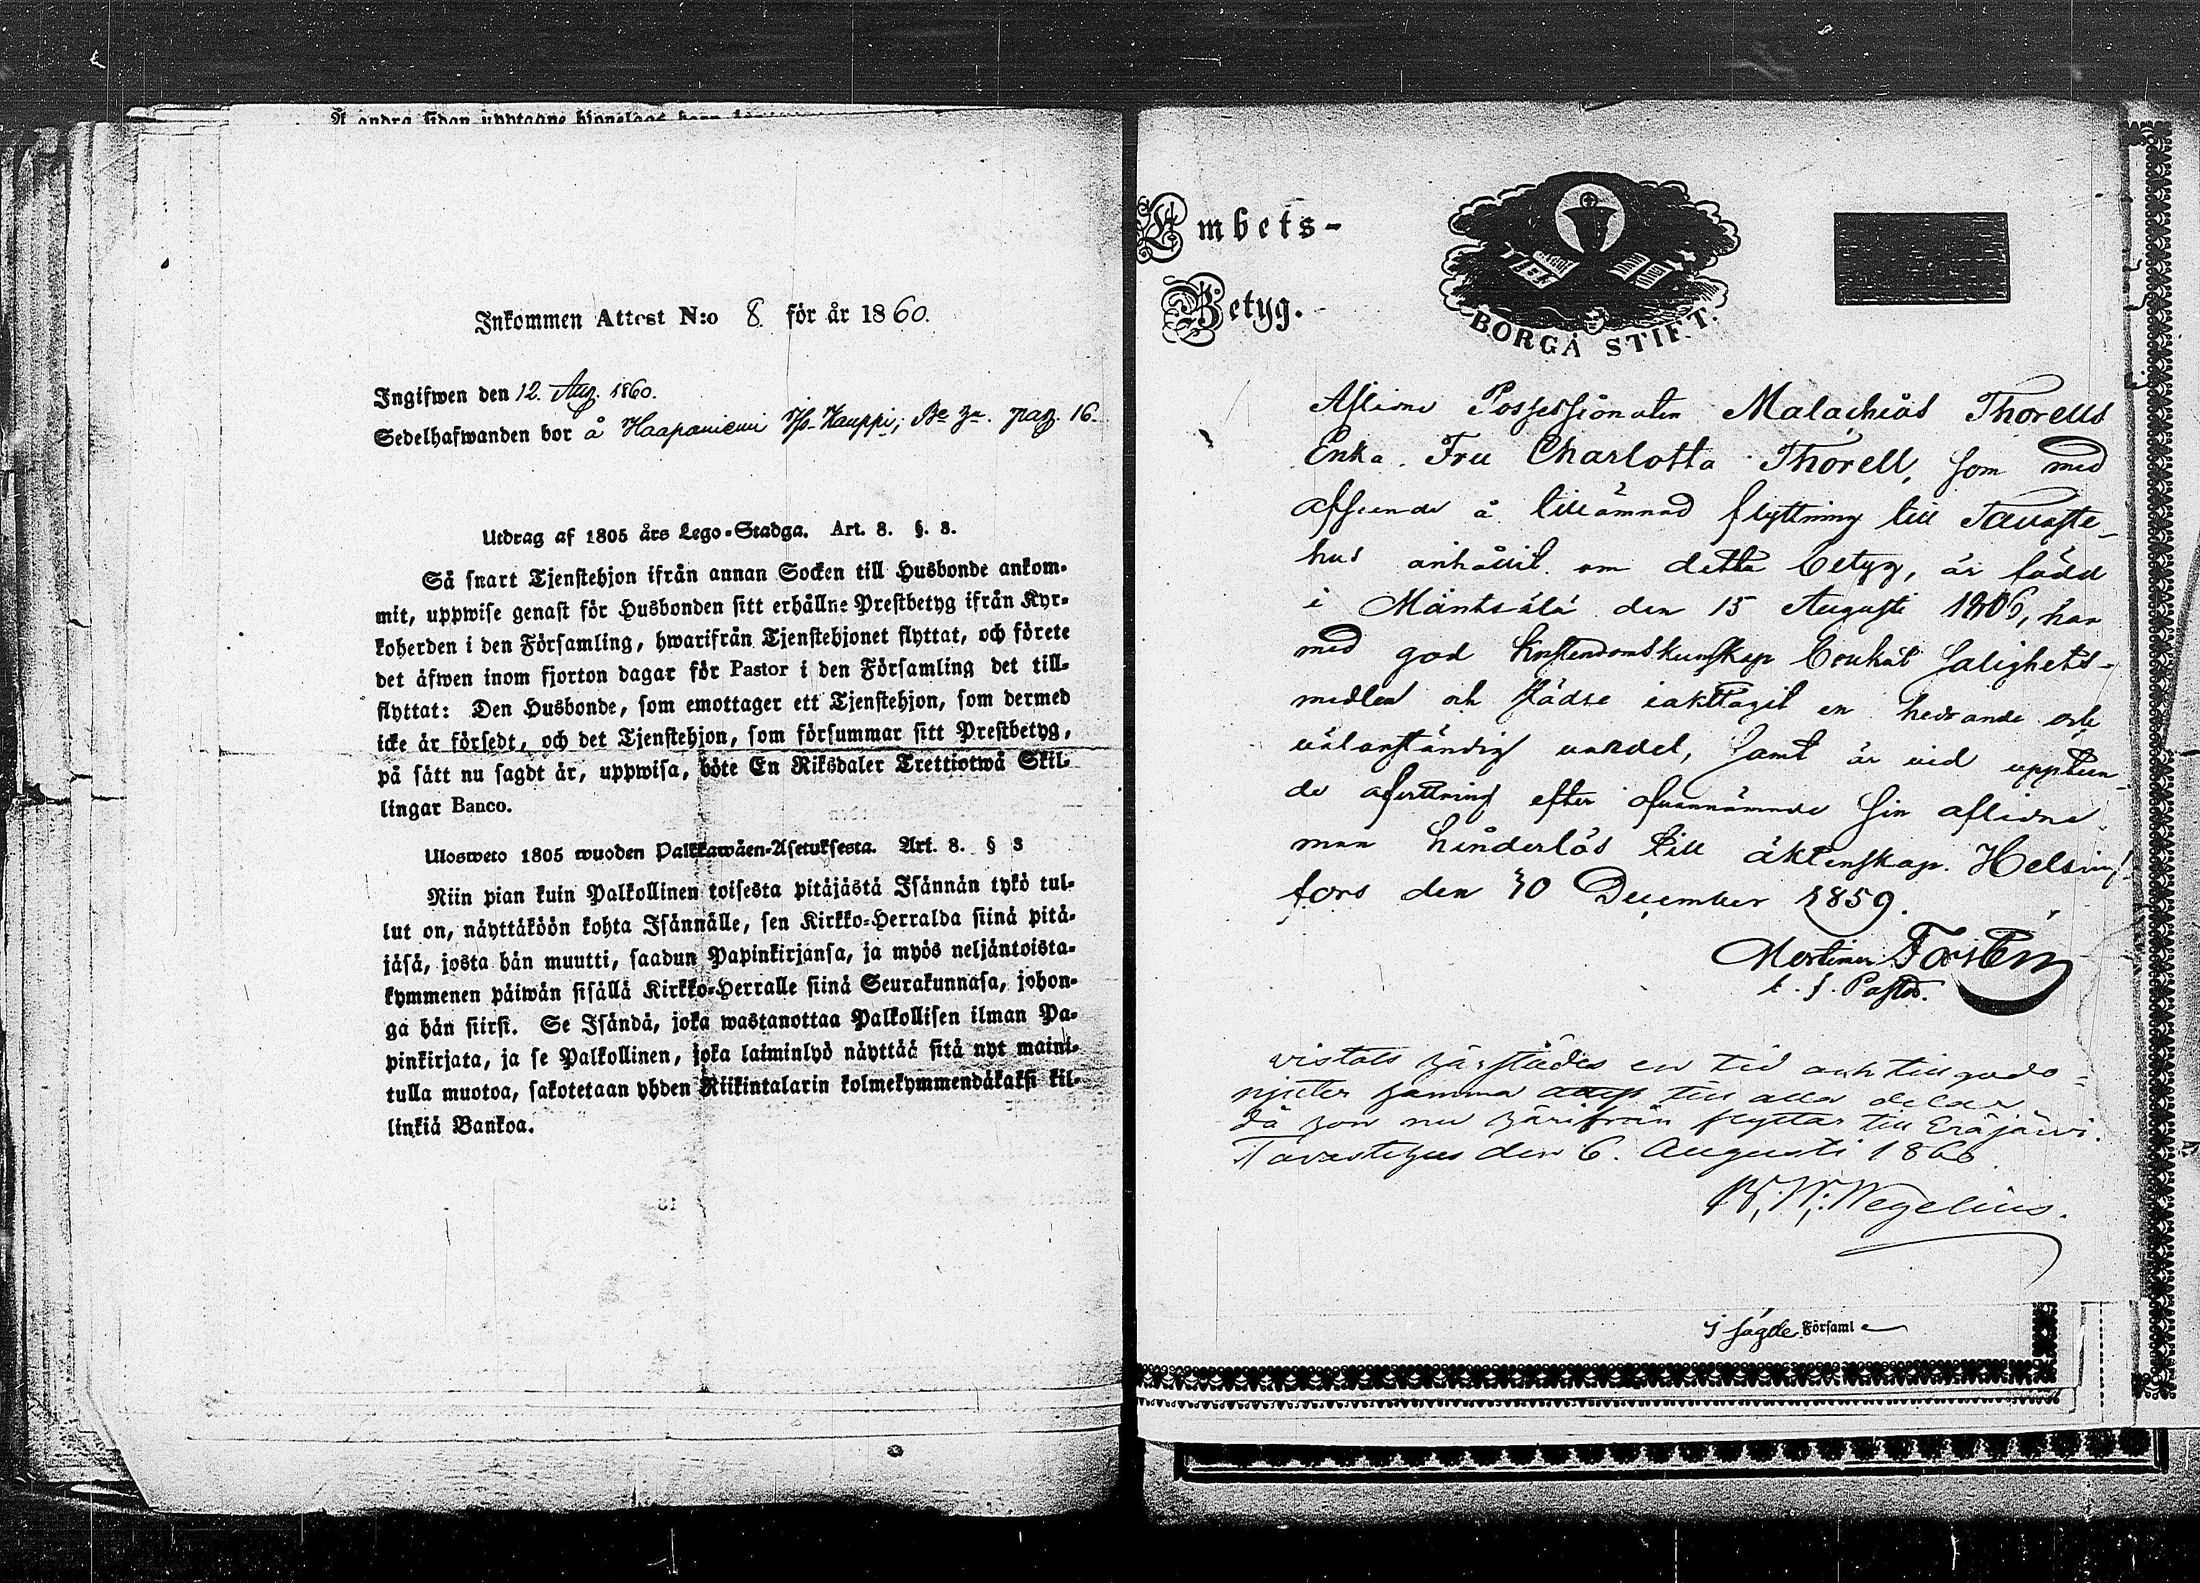 Å andra sidan upptagne hjonelags
Inkommen Attest N:o 8 för år 1860.
Ingifwen den 12. Aug. 1860.
Sedelhafwanden bor å Haapaniemi Kauppi, pag. 16.
Utdrag af 1805 års Lego-Stadga. Art. 8. §. 3.
Så snart Tjenstehjon ifrån annan Socken till Husbonde ankom-
mit, uppwise genast för Husbonden sitt erhållne Prestbetyg ifrån Kyr-
koherden i den Församling, hwarifrån Tjenstehjonet flyttat, och förete
det äfwen inom fjorton dagar för Pastor i den Församling det till-
flyttat: Den Husbonde, som emottager ett Tjenstehjon, som dermed
icke är försedt, och det Tjenstehjon, som försummar sitt Prestbetyg,
på sätt nu sagdt är, uppwisa, böte En Riksdaler Trettiotwå Skil-
lingar Banco.
Ulosweto 1805 wuoden Palkkawäen-Asetuksesta. Art. 8. § 3
Niin pian kuin Palkollinen toisesta pitäjästä Isännän tykö tul-
lut on, näyttäköön kohta Isännälle, sen Kirkko-Herralda siinä pitä-
jäsä, josta hän muutti, saadun Papinkirjansa, ja myös neljäntoista-
kymmenen päiwän sisällä Kirkko-Herralle siinä Seurakunnasa, johon-
ga hän siirsi. Se Isändä, joka wastanottaa Palkollisen ilman Pa-
pinkirjata, ja se Palkollinen, joka laiminlyö näyttää sitä nyt maini-
tulla muotoa, sakotetaan yhden Riikintalarin kolmekymmendäkaksi kil-
linkiä Bankoa.
Embets-
Betyg.
BORGÅ STIFT.
Aflidne Possessionaten Malachias Thorells
Enka Fru Charlotta Thorell, som med
afseende å tillämnad flyttning till Tavaste-
hus anhållit om detta betyg, är född
i Mäntsälä den 15 Augusti 1806, har
med god kristendomskunskap brukat salighets-
medlen och städse iakttagit en hedrande och
välanständig vandel, samt är vid uppteen-
de afvittring efter ofvannämnde sin aflidne
man hinderlös till äktenskap. Helsing-
fors den 30 December 1859.
Forstén
t. f. Pastor.
vistats härstädes en tid och tillgodo-
njuter samma till alla delar
då hon nu härifrån flyttar till Eräjärvi.
Tavastehus den 6. Augusti 1860.
Wegelius.
I sagde Församl